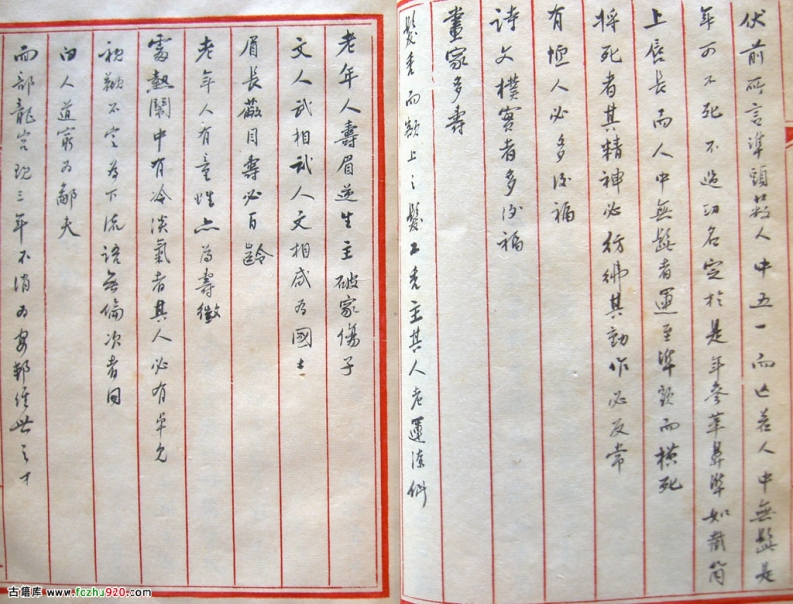 伏前所言準頭蔽人中五一而亡若人中無髭是
年可不死不過功名定於是年參革鼻準如截筒
上唇長而人中無髭者運至準頭而橫死
將死者其精神必彷彿其動作必反常
有恆人必多後福
詩文樸實者多後福
畫家多壽
髮禿而額上之髮不禿主其人老運
老年人壽眉逆生主破家傷子
文人武相武人文相咸為國士
眉長蔽目壽必百齡
老年人有童性亦為壽徵
當熱鬧中有冷淡氣者其人必有卓見
視瞻不定為下流語無倫次者同
向人道窮為鄙夫
而部龍宮現三年不消為安邦經世之才
古籍库 www.fczhu920.com